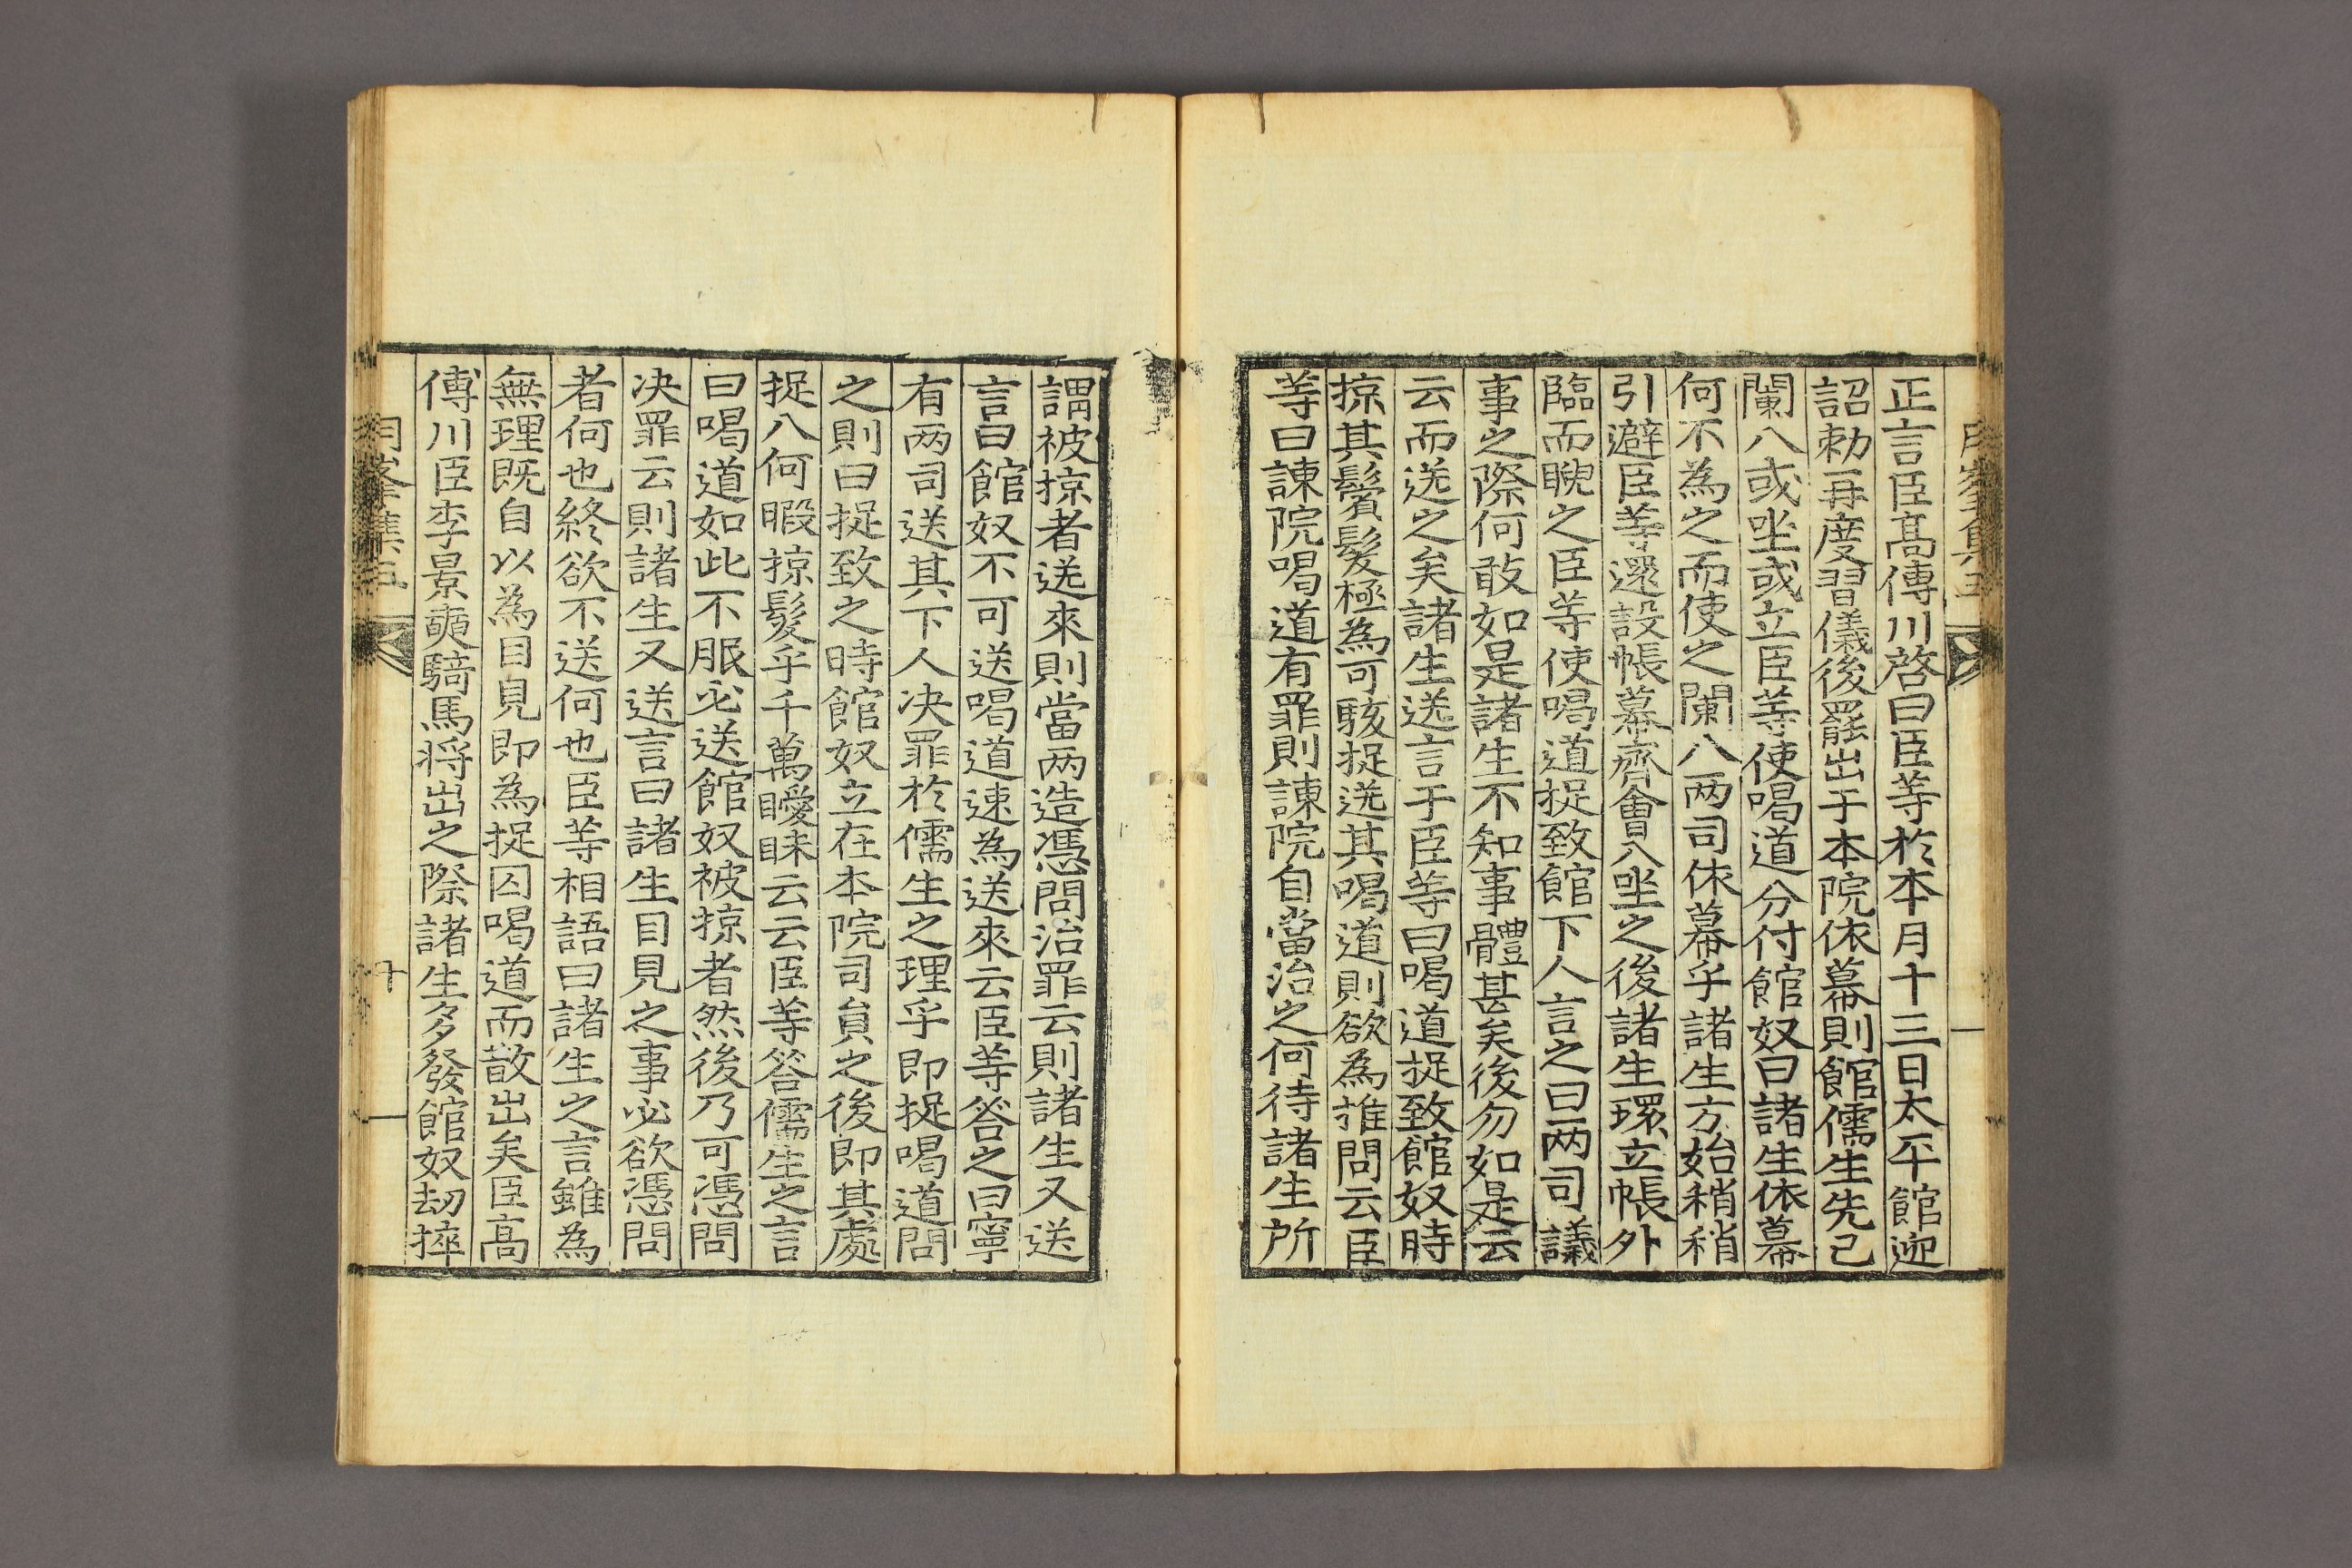 正言臣髙傅川啓曰臣等於本月十三日太平館迎
詔勑再度習儀後罷出于本院依幕則館儒生先已
闌入或坐或立臣等使喝道分付館奴曰諸生依幕
何不為之而使之闌入两司依幕乎諸生方始稍稍
引避臣等還設帳幕齊會入坐之後諸生環立帳外
臨而睨之臣等使喝道捉致館下人言之曰两司議
事之際何敢如是諸生不知事體甚矣後勿如是云
云而送之矣諸生送言于臣等曰喝道捉致館奴時
掠其鬢髮極為可駭捉送其喝道則欲為推問云臣
等曰諫院喝道有罪則諫院自當治之何待諸生所
謂被掠者送來則當两造憑問治罪云則諸生又送
言曰館奴不可送喝道速為送來云臣等答之曰寧
有两司送其下人决罪於儒生之理乎即捉喝道問
之則曰捉致之時館奴立在本院司貟之後即其處
捉入何暇掠髮乎千萬曖昧云云臣等答儒生之言
曰喝道如此不服必送館奴被掠者然後乃可憑問
决罪云則諸生又送言曰諸生目見之事必欲憑問
者何也終欲不送何也臣等相語曰諸生之言雖為
無理既自以為目見即為捉囚喝道而散出矣臣髙
傅川臣李景奭騎馬将出之際諸生多發館奴刼捽
峯集五
十